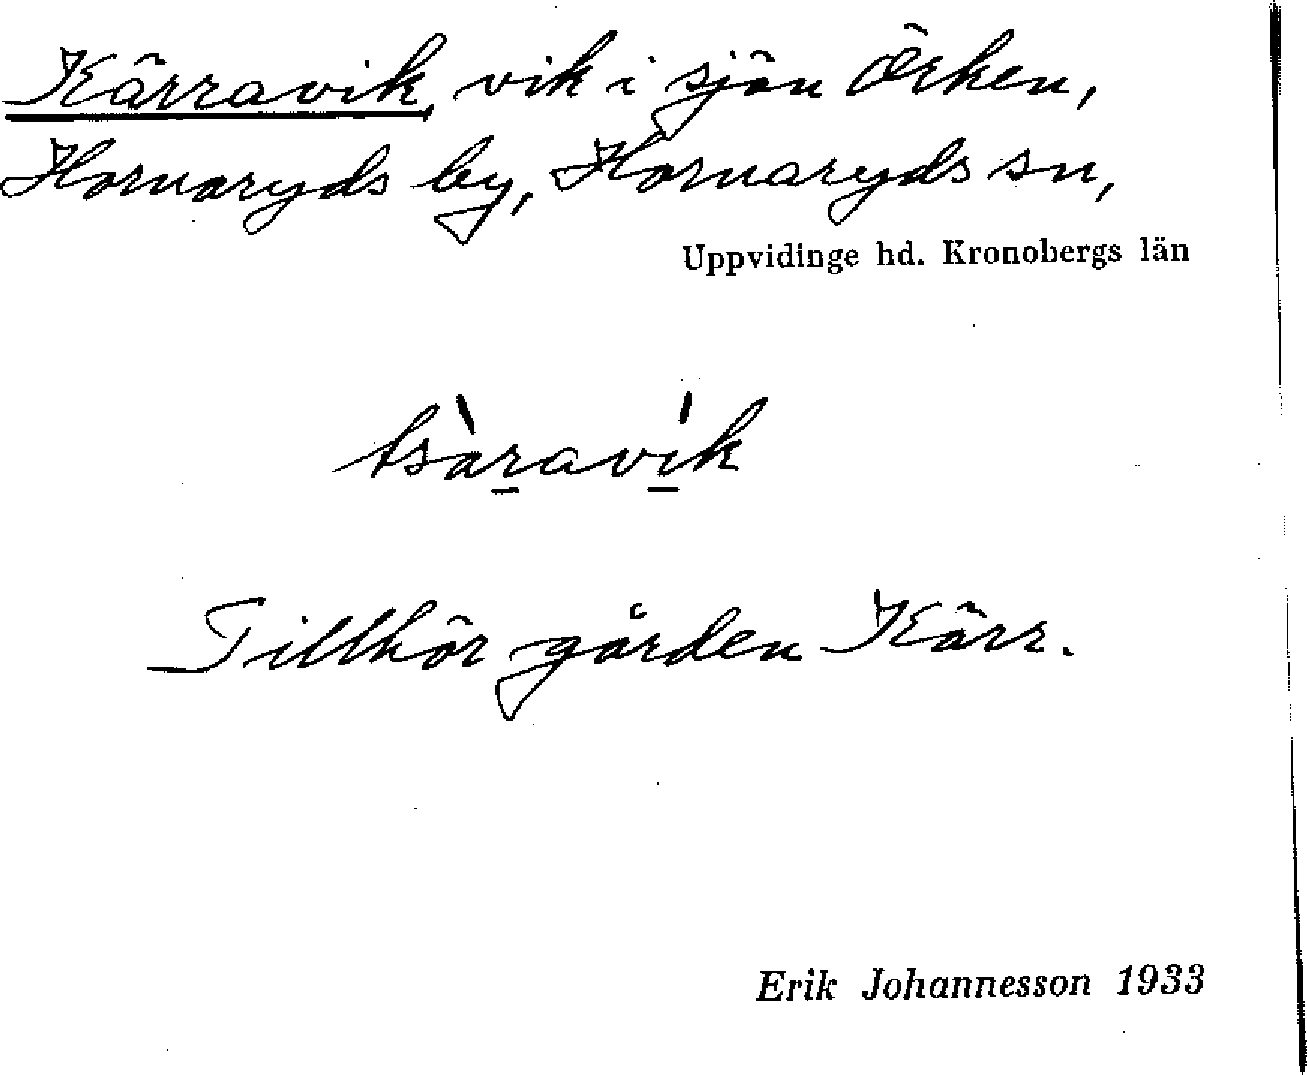 Kärravik, vik i sjön Örken,
Hornaryds by, Hornaryds sn,
Uppvidinge hd. Kronobergs län
tsàravík
Tillhör gården Kärr.
Erik Johannesson 1933